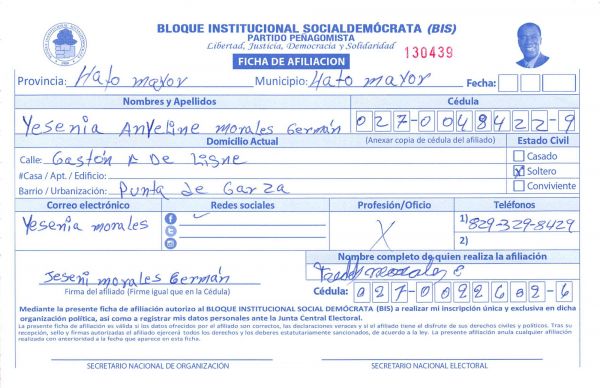 BLOQUE INSTITUCIONAL SOCIALDEMÓCRATA (BIS)
PARTIDO PEÑAGOMISTA
Libertad, Justicia, Democracia y Solidaridad
130439
FICHA DE AFILIACION
Provincia: Hato mayor Municipio: Hato mayor Fecha:
Nombres y Apellidos Cédula
Yesenia Anyeline morales Germán 027-0048422-9
Domicilio Actual (Anexar copia de cédula del afiliado) Estado Civil
Calle: Gastón A De Ligne Casado
#Casa / Apt. / Edificio: X Soltero
Barrio / Urbanización: Punta de Garza Conviviente
Correo electrónico Redes sociales Profesión/Oficio Teléfonos
Yesenia morales X 1) 829-329-8429
2)
Nombre completo de quien realiza la afiliación
Jeseni morales Germán
Firma del afiliado (Firme igual que en la Cédula) Cédula: 027-0022632-6
Mediante la presente ficha de afiliación autorizo al BLOQUE INSTITUCIONAL SOCIAL DEMÓCRATA (BIS) a realizar mi inscripción única y exclusiva en dicha
organización política, así como a registrar mis datos personales ante la Junta Central Electoral.
La presente ficha de afiliación es válida si los datos ofrecidos por el afiliado son correctos, las declaraciones veraces y si el afiliado tiene el disfrute de sus derechos civiles y políticos. Tras su
recepción, sello y firmas autorizadas el afiliado ejercerá todos los derechos y los deberes estatutariamente sancionados, de acuerdo a la ley. La presente afiliación anula cualquier afiliación
realizada con anterioridad a la fecha que aparece en esta ficha.
SECRETARIO NACIONAL DE ORGANIZACIÓN SECRETARIO NACIONAL ELECTORAL